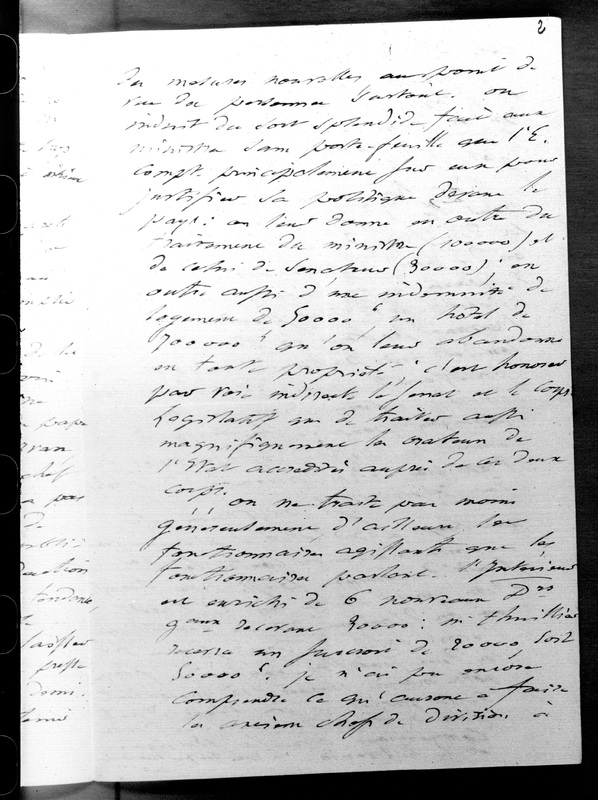 2
des mesures nouvelles au point de
vue du personnel surtout. on
induit du sort splendide fait aux
ministres sans porte-feuille que l'E.
compte principalement sur eux pour
justifier sa politique devant le
pays : on leur donne en outre du
traitement du ministre (100000) et
de celui de Senateur (30000); en
outre aussi d'une indemnité de
logement de 50000 f un hôtel de
700000 f qu'on leur abandonne
en toute propriété : c'est honorer
par voie indirecte le Senat et le Corps
Legislatif que de traiter aussi
magnifiquement les orateurs de
l'Etat accredités auprès de ces deux
corps.
on ne traite pas moins
généreusement d'ailleurs les
fonctionnaires agissants que les
fonctionnaires parlant. l'Interieur
est enrichi de 6 nouveaux Drs
gaux recevant 30000 : m. thuillier
recevra un de 20000 soit
50000 f. je n'ai pu encore
comprendre ce qu'auront à faire
les anciens chefs de division à